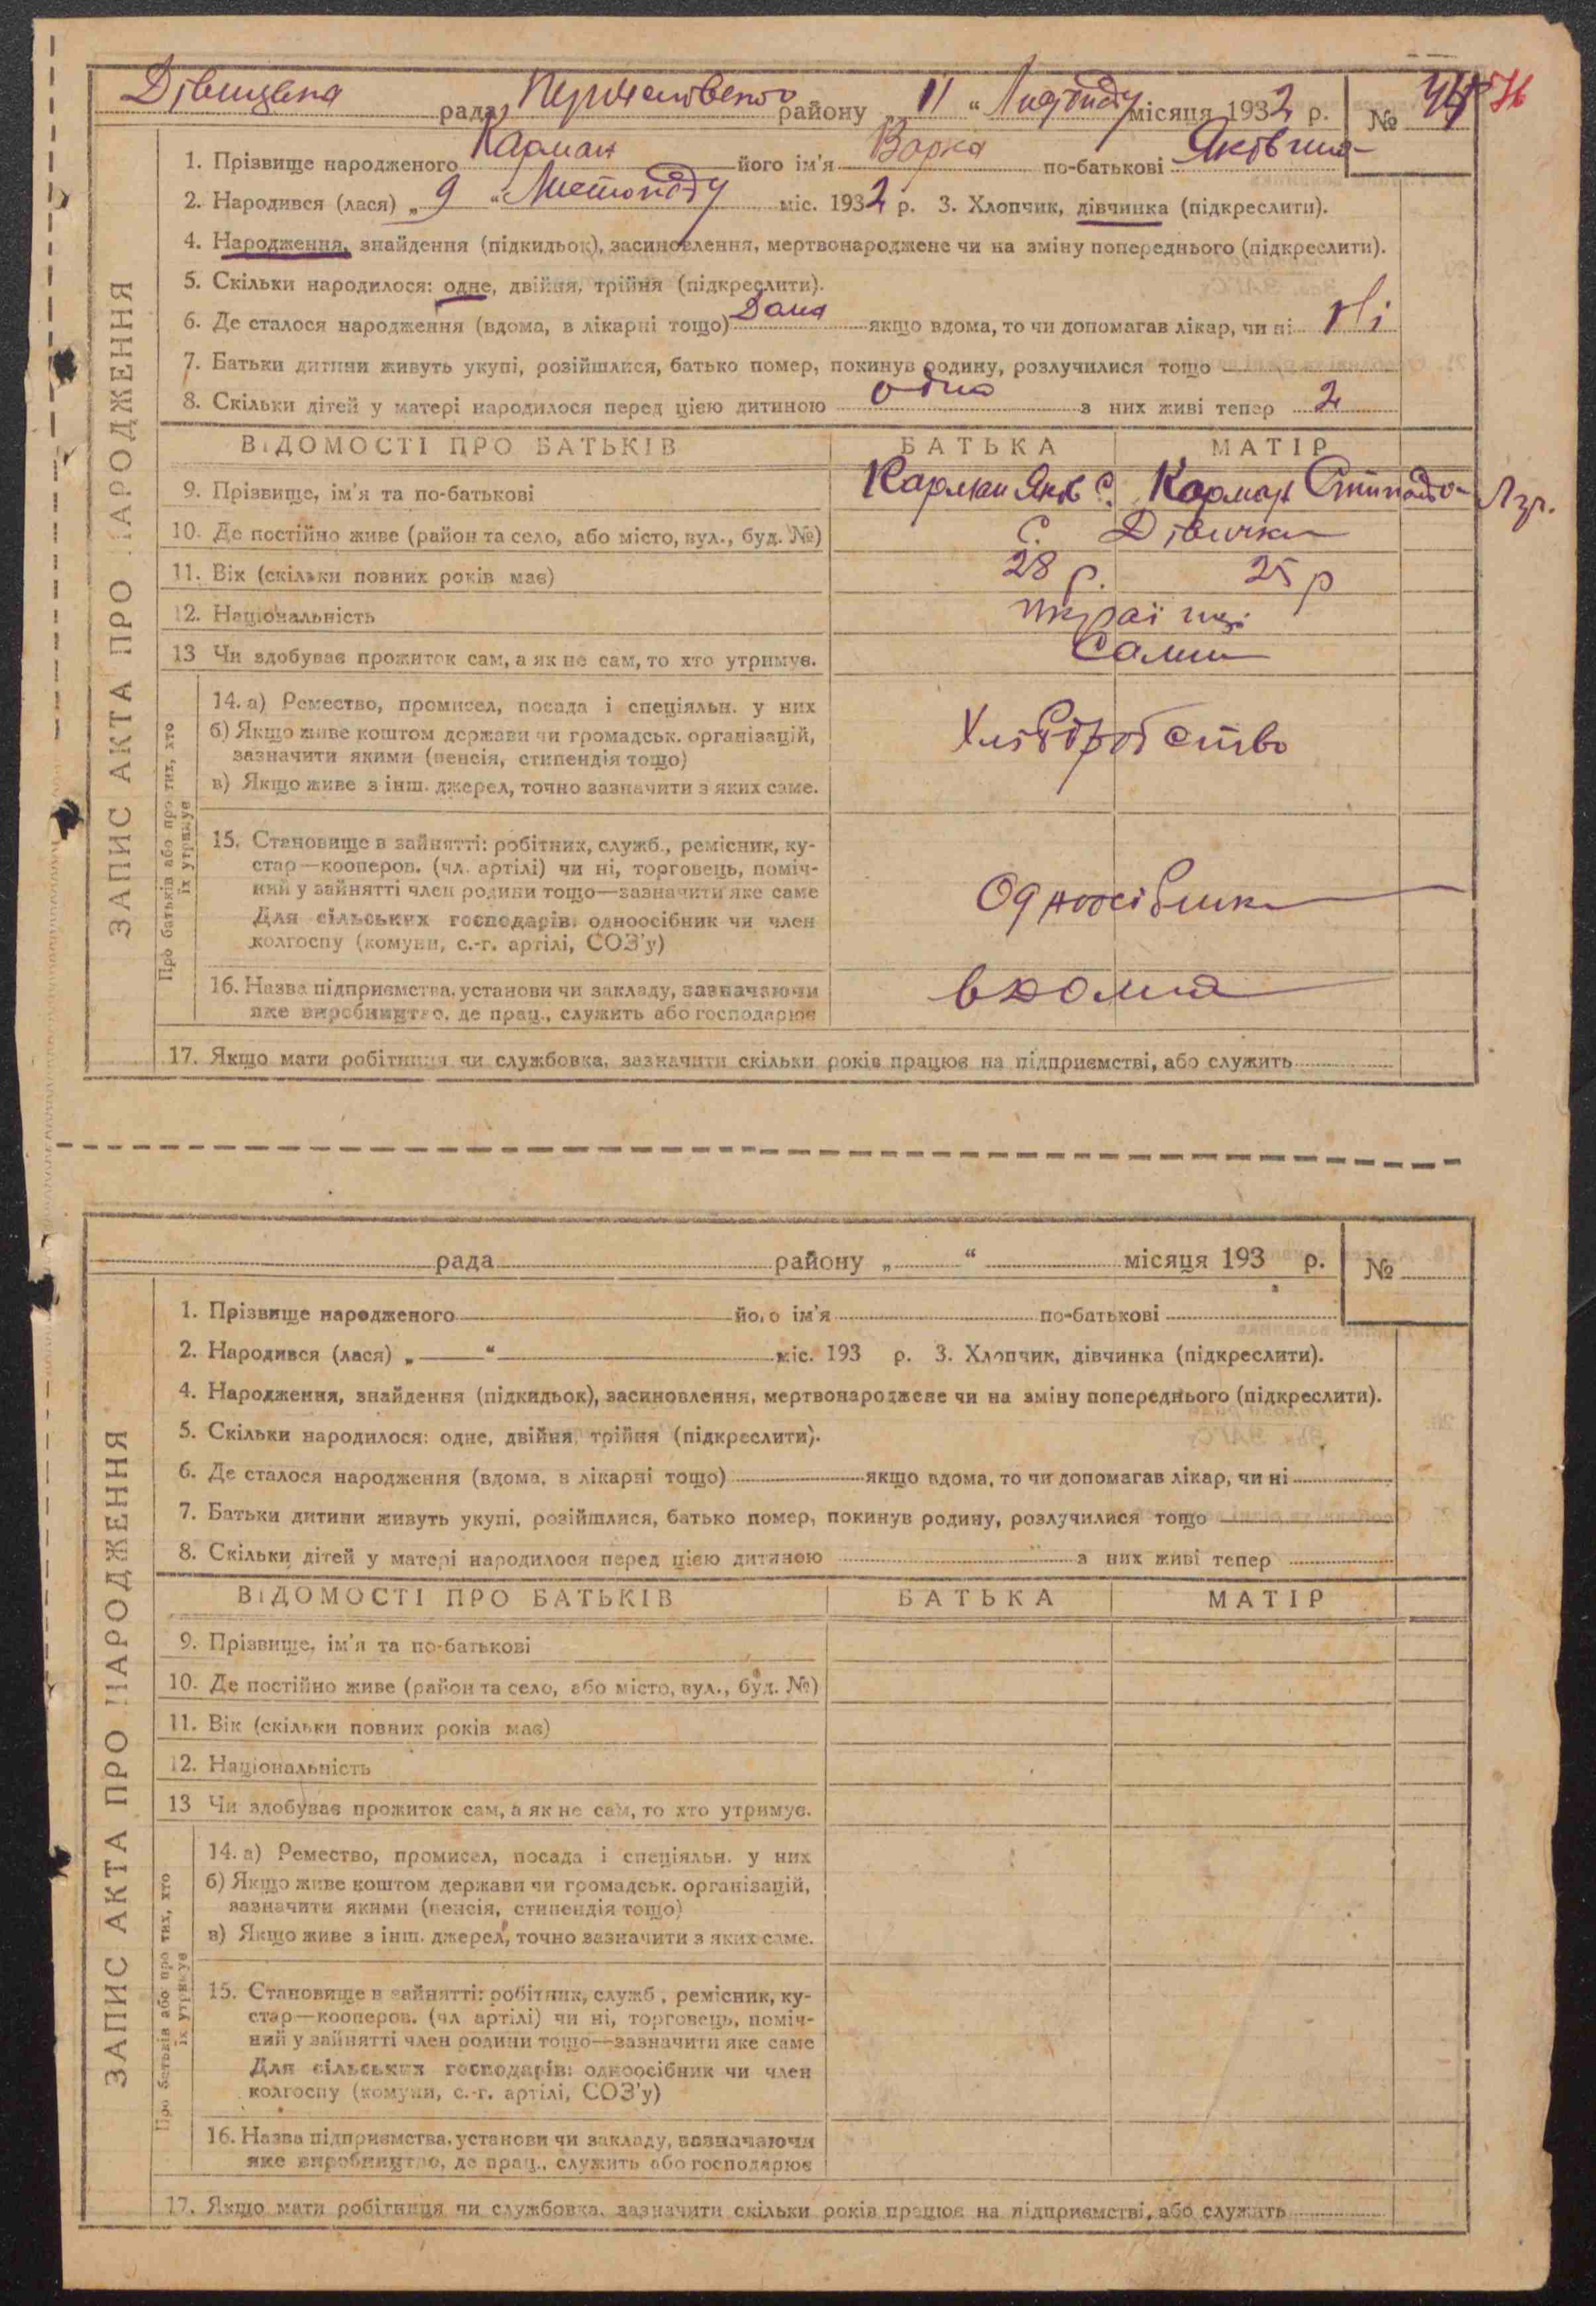 Дівицька рада, району „11“ Листопаду місяця 1932 р. №
76
1. Прізвище народженого Карман його ім'я Варка по-батькові Яківна
2. Народився (лася) „9“ Листопаду міс. 1932 р. 3. Хлопчик, дівчинка (підкреслити).
4. Народження, знайдення (підкидьок), засиновлення, мертвонароджене чи на зміну попереднього (підкреслити).
5. Скільки народилося: одне, двійня, трійня (підкреслити).
6. Де сталося народження (вдома, в лікарні тощо) Дома якщо вдома, то чи допомагав лікар, чи ні Ні
7. Батьки дитини живуть укупі, розійшлися, батько помер, покинув родину, розлучилися тощо
8. Скільки дітей у матері народилося перед цією дитиною одна з них живі тепер 2
ЗАПИС АКТА ПРО НАРОДЖЕННЯ
ВІДОМОСТІ ПРО БАТЬКІВ БАТЬКА МАТІР
9. Прізвище, ім'я та по-батькові Карман Яків С. Карман
10. Де постійно живе (район та село, або місто, вул., буд. №) С. Дівички
11. Вік (скільки повних років має) 28 р. 25 р
12. Національність україці
13 Чи здобуває прожиток сам, а як не сам, то хто утримує. Сами
Про батьків або про тих, хто
їх утримує
14. а) Ремество, промисел, посада і спеціяльн. у них
б) Якщо живе коштом держави чи громадськ. організацій,
зазначити якими (пенсія, стипендія тощо)
в) Якщо живе з інш. джерел, точно зазначити з яких саме.
Хліборобство
15. Становище в зайнятті: робітник, служб., ремісник, ку-
стар—кооперов. (чл. артілі) чи ні, торговець, поміч-
ний у зайнятті член родини тощо—зазначити яке саме
Для сільських господарів: одноосібник чи член
колгоспу (комуни, с.-г. артілі, СОЗ'у)
Одноосібники
16. Назва підприємства, установи чи закладу, зазначаючи
яке виробництво, де прац., служить або господарює
вдома
17. Якщо мати робітниця чи службовка, зазначити скільки років працює на підприємстві, або служить
рада району „ “ місяця 193 р. №
1. Прізвище народженого його ім'я по-батькові
2. Народився (лася) „ “ міс. 193 р. 3. Хлопчик, дівчинка (підкреслити).
4. Народження, знайдення (підкидьок), засиновлення, мертвонароджене чи на зміну попереднього (підкреслити).
5. Скільки народилося: одне, двійня, трійня (підкреслити).
6. Де сталося народження (вдома, в лікарні тощо) якщо вдома, то чи допомагав лікар, чи ні
7. Батьки дитини живуть укупі, розійшлися, батько помер, покинув родину, розлучилися тощо
8. Скільки дітей у матері народилося перед цією дитиною з них живі тепер
ЗАПИС АКТА ПРО НАРОДЖЕННЯ
ВІДОМОСТІ ПРО БАТЬКІВ БАТЬКА МАТІР
9. Прізвище, ім'я та по-батькові
10. Де постійно живе (район та село, або місто, вул., буд. №)
11. Вік (скільки повних років має)
12. Національність
13 Чи здобуває прожиток сам, а як не сам, то хто утримує.
Про батьків або про тих, хто
їх утримує
14. а) Ремество, промисел, посада і спеціяльн. у них
б) Якщо живе коштом держави чи громадськ. організацій,
зазначити якими (пенсія, стипендія тощо)
в) Якщо живе з інш. джерел, точно зазначити з яких саме.
15. Становище в зайнятті: робітник, служб., ремісник, ку-
стар—кооперов. (чл артілі) чи ні, торговець, поміч-
ний у зайнятті член родини тощо—зазначити яке саме
Для сільських господарів: одноосібник чи член
колгоспу (комуни, с.-г. артілі, СОЗ'у)
16. Назва підприємства, установи чи закладу, зазначаючи
яке виробництво, де прац., служить або господарює
17. Якщо мати робітниця чи службовка, зазначити скільки років працює на підприємстві, або служить